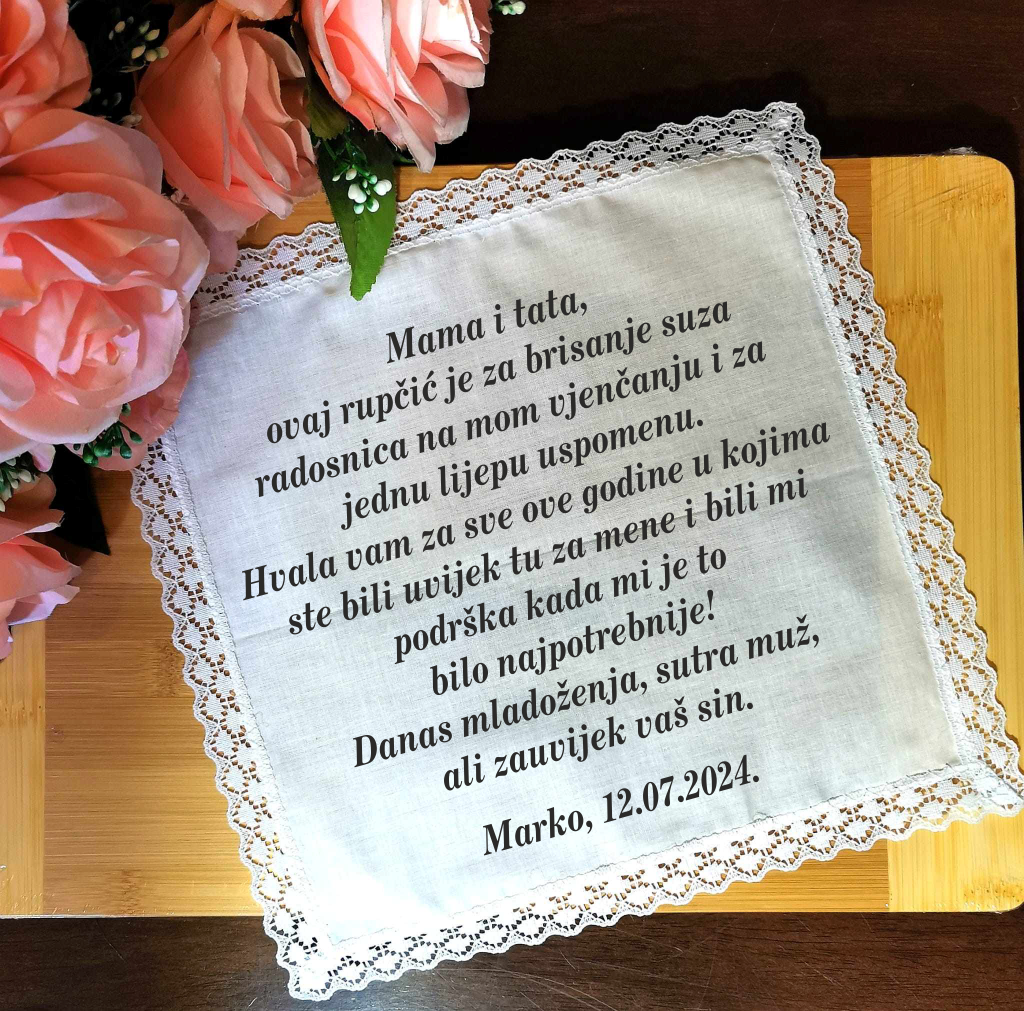 Mama i tata,
ovaj rupčić je za brisanje suza
radosnica na mom vjenčanju i za
jednu lijepu uspomenu.
Hvala vam za sve ove godine u kojima
ste bili uvijek tu za mene i bili mi
podrška kada mi je to
bilo najpotrebnije!
Danas mladoženja, sutra muž,
ali zauvijek vaš sin.
Marko, 12.07.2024.